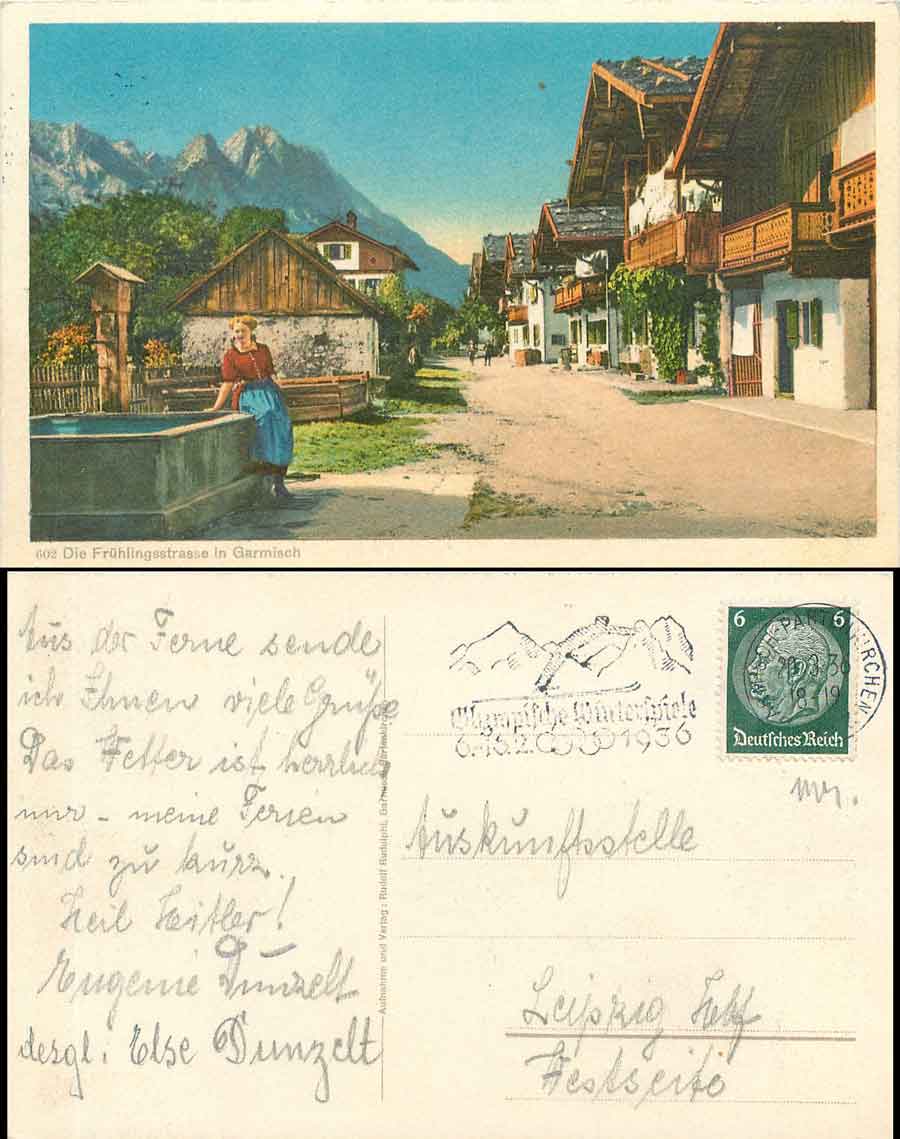 602 Die Frühlingsstrasse in Garmisch
Aus der Ferne sende
ich Ihnen viele Grüße
Das Wetter ist herrlich
nur – meine Ferien
sind zu kurz.
Heil Hitler!
Eugenie Dunzelt
desgl. Else Dunzelt
Aufnahme und Verlag: Rudolf Rudolphi, Garmisch-Partenkirchen
Olympische Winterspiele
6.-16.2. 1936
6 6
Deutsches Reich
PARTENKIRCHEN
36
18-19
Auskunftsstelle
Leipzig Hbf
Westseite